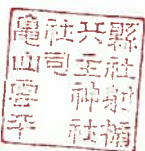 縣社射楯
兵主神社
社司
亀山雲平